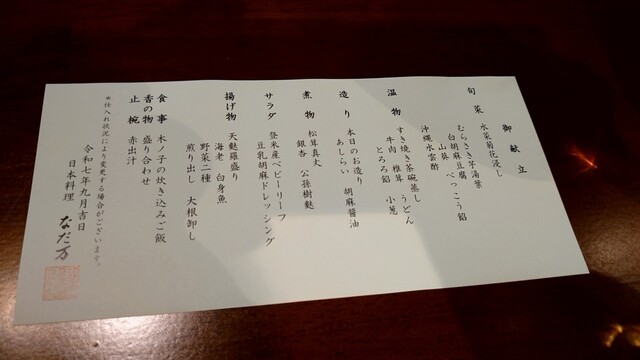 御献立
旬菜 水菜菊花浸し
むらさき芋湯葉
白胡麻豆腐 べっこう餡
山葵
沖縄水雲酢
温物 すき焼き茶碗蒸し
牛肉 椎茸 うどん
とろろ餡 小葱
造り 本日のお造り
あしらい 胡麻醤油
煮物 松茸真丈
銀杏 公孫樹麩
サラダ 登米産ベビーリーフ
豆乳胡麻ドレッシング
揚げ物 天麩羅盛り
海老 白身魚
野菜二種
煎り出し 大根卸し
食事 木ノ子の炊き込みご飯
香の物 盛り合わせ
止椀 赤出汁
*仕入れ状況により変更する場合がございます。
令和七年九月吉日
日本料理 なだ万